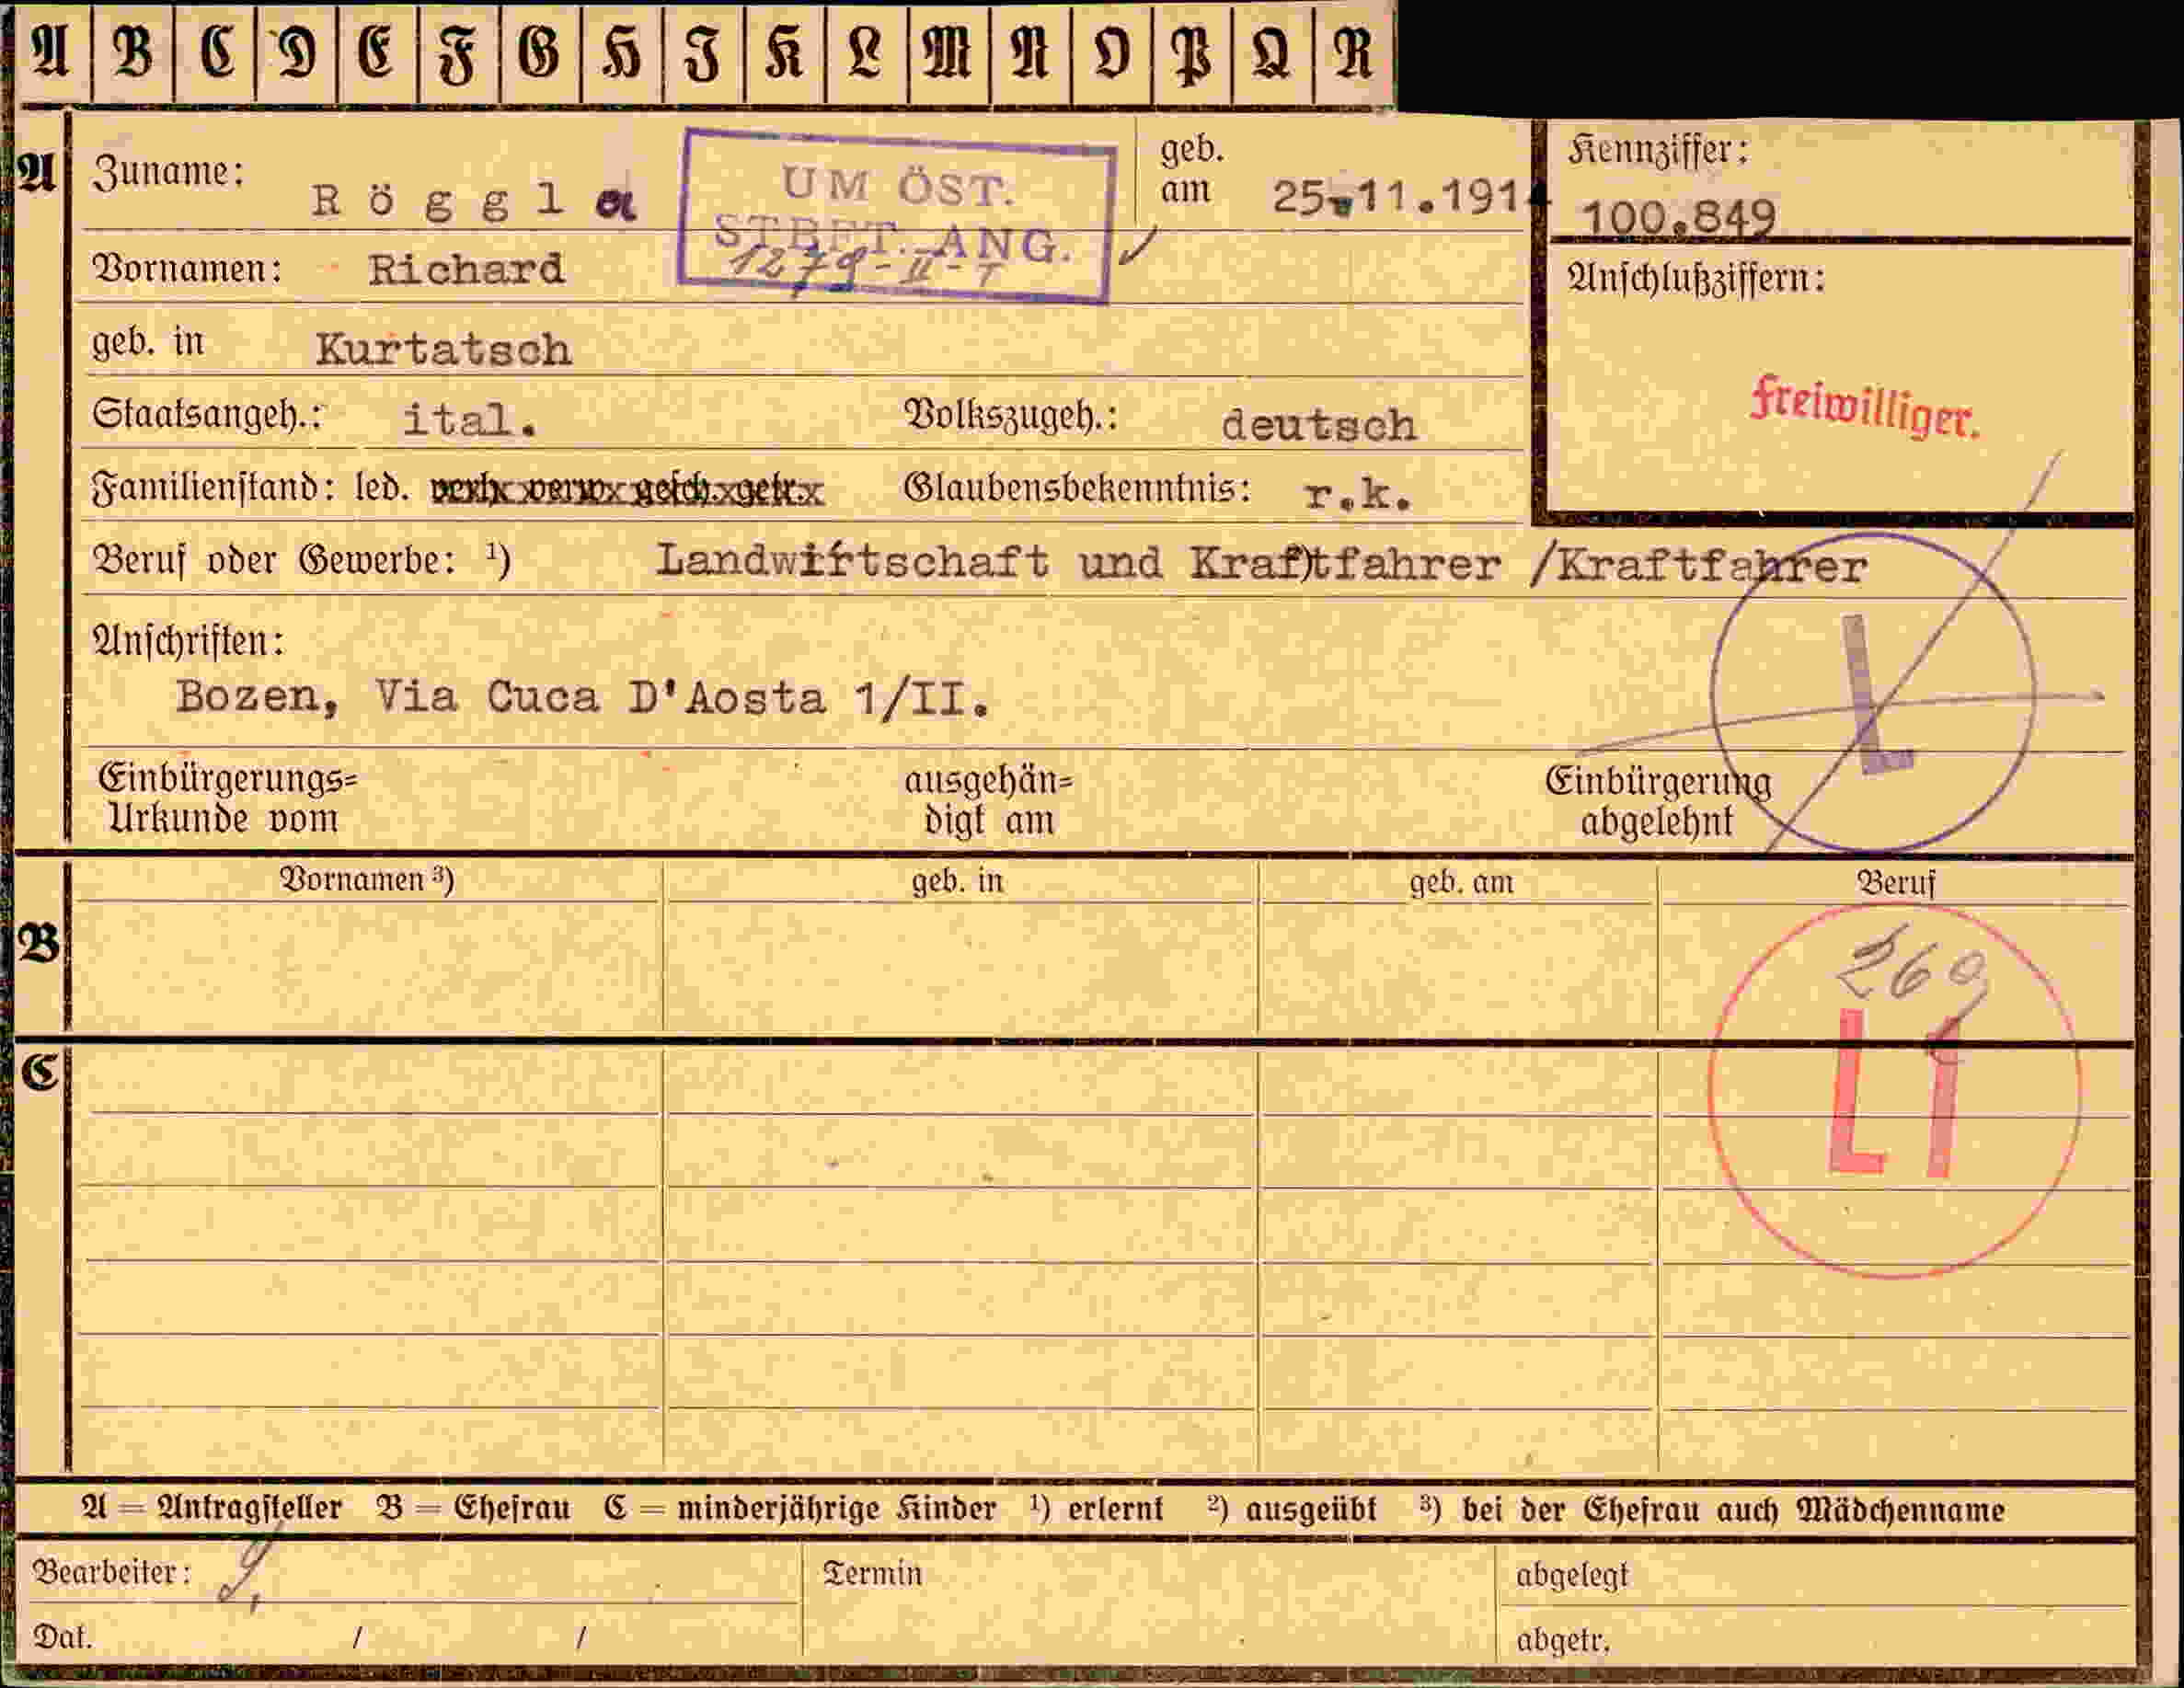 A B C D E F G H I K L M N O P Q R
A
Zuname: Röggla
UM ÖST.
STBFT. ANG.
1279-II-T
geb.
am 25.11.1914
Kennziffer:
100.849
Vornamen: Richard
Anschlußziffern:
geb. in Kurtatsch
Freiwilliger.
Staatsangeh.: ital. Volkszugeh.: deutsch
Familienstand: led. verh. verw. gesch. getr. Glaubensbekenntnis: r.k.
Beruf oder Gewerbe: ¹) Landwirtschaft und Kraftfahrer /Kraftfahrer
Anschriften:
L
Bozen, Via Cuca D'Aosta 1/II.
Einbürgerungs=
Urkunde vom
ausgehän=
digt am
Einbürgerung
abgelehnt
B
Vornamen ³) geb. in geb. am Beruf
260
L1
C
A = Antragsteller B = Ehefrau C = minderjährige Kinder ¹) erlernt ²) ausgeübt ³) bei der Ehefrau auch Mädchenname
Bearbeiter:
Termin
abgelegt
Dat. / /
abgetr.